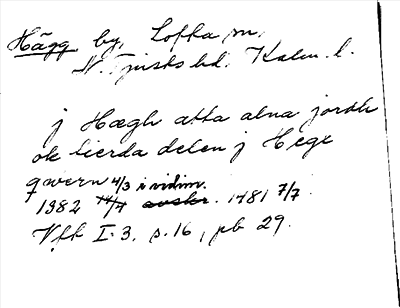 Hägg by, Lofta sn,
N. Tjusts hd. Kalm. l.
j Hægh atta alna jordh
ok tierda delen j Hegx
qwern 4/3 i vidim.
1382 14/4 avskr. 1481 7/7.
Vfk I:3, s. 16, pb 29.